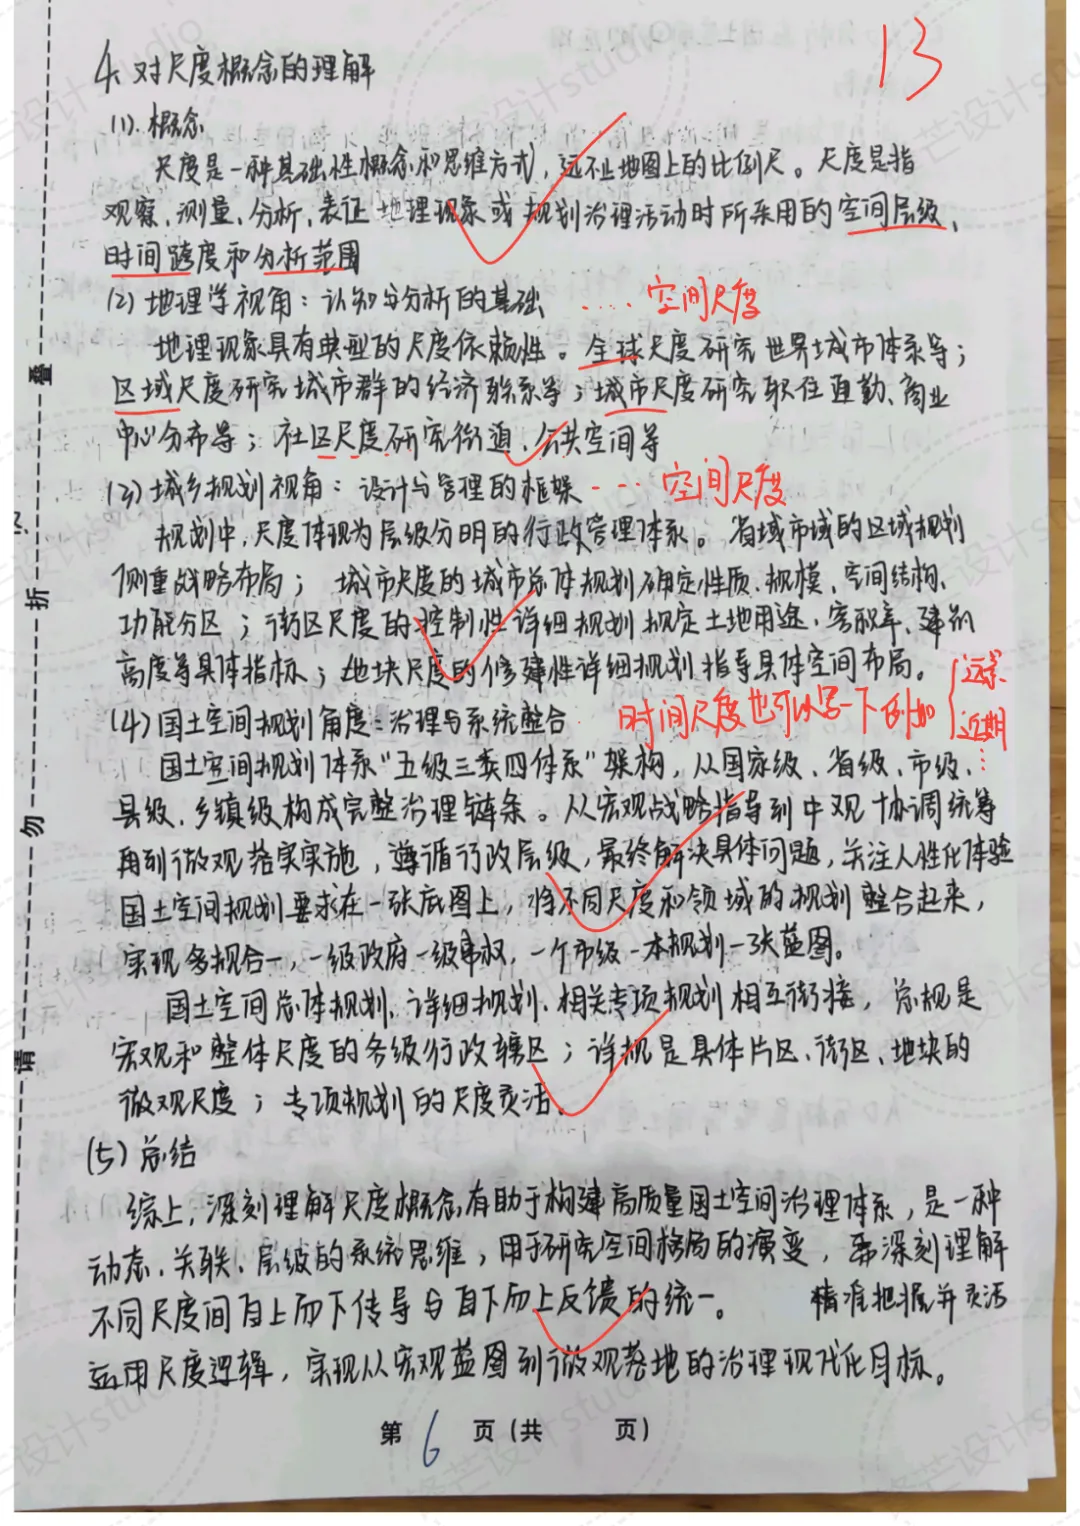 13
4. 对尺度概念的理解
(1). 概念
尺度是一种基础性概念和思维方式，远不止地图上的比例尺。尺度是指
观察、测量、分析、表征地理现象或规划治理活动时所采用的空间层级、
时间跨度和分析范围
(2) 地理学视角：认知与分析的基础 .... 空间尺度
地理现象具有典型的尺度依赖性。全球尺度研究世界城市体系等；
区域尺度研究城市群的经济联系等；城市尺度研究职住通勤、商业
中心分布等；社区尺度研究街道、公共空间等
(3) 城乡规划视角：设计与管理的框架 --- 空间尺度
规划中，尺度体现为层级分明的行政管理体系。省域市域的区域规划
侧重战略布局；城市尺度的城市总体规划确定性质、规模、空间结构、
功能分区；街区尺度的控制性详细规划规定土地用途、容积率、建筑
高度等具体指标；地块尺度的修建性详细规划指导具体空间布局。
时间尺度也可以写一下 例如 远景 近期 ⋮
(4) 国土空间规划角度：治理与系统整合
国土空间规划体系“五级三类四体系”架构，从国家级、省级、市级、
县级、乡镇级构成完整治理链条。从宏观战略指导到中观协调统筹
再到微观落实实施，遵循行政层级，最终解决具体问题，关注人性化体验
国土空间规划要求在一张底图上，将不同尺度和领域的规划整合起来，
实现多规合一，一级政府一级事权，一个市级一本规划一张蓝图。
国土空间总体规划、详细规划、相关专项规划相互衔接，总规是
宏观和整体尺度的各级行政辖区；详规是具体片区、街区、地块的
微观尺度；专项规划的尺度灵活。
(5) 总结
综上，深刻理解尺度概念有助于构建高质量国土空间治理体系，是一种
动态、关联、层级的系统思维，用于研究空间格局的演变，深刻理解
不同尺度间自上而下传导与自下而上反馈的统一。 精准把握并灵活
运用尺度逻辑，实现从宏观蓝图到微观落地的治理现代化目标。
第 6 页（共 页）
请 勿 折 叠